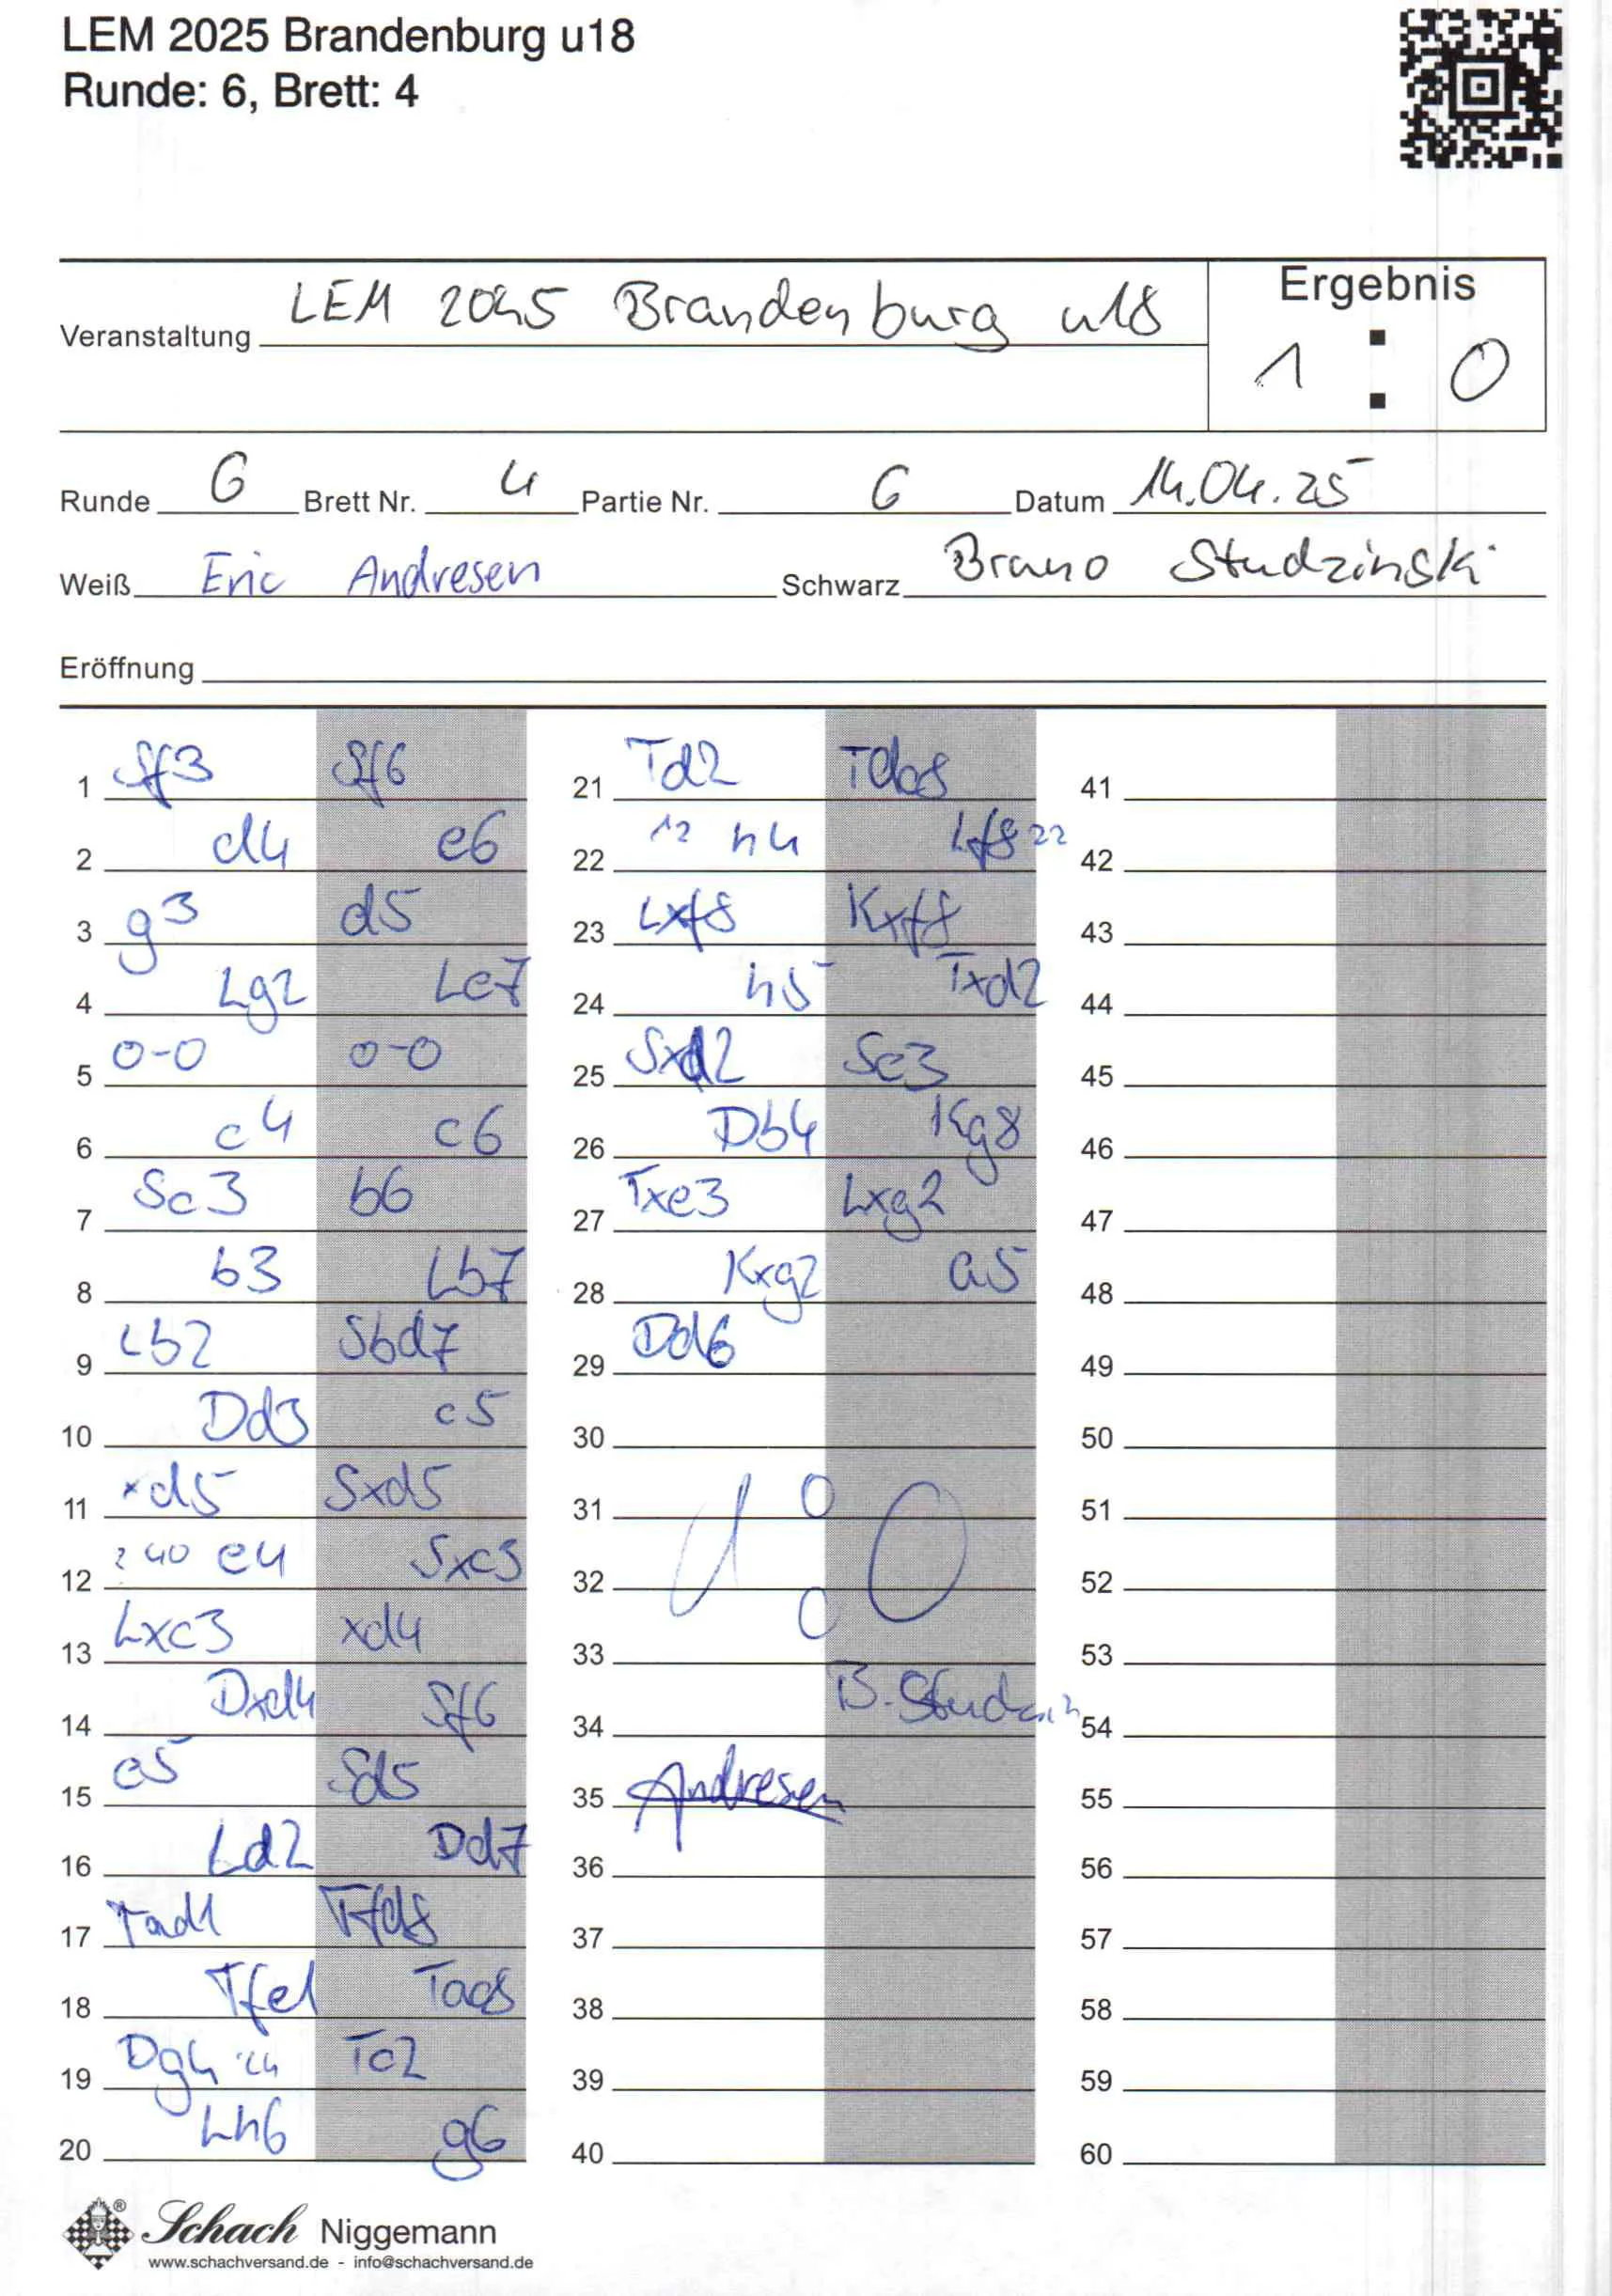 LEM 2025 Brandenburg u18
Runde: 6, Brett: 4
Ergebnis
Veranstaltung LEM 2025 Brandenburg u18
1 : 0
Runde 6 Brett Nr. 4 Partie Nr. 6 Datum 14.04.25
Weiß Eric Andresen Schwarz Bruno Studzinski
Eröffnung
1 Sf3 Sf6
2 d4 e6
3 g3 d5
4 Lg2 Le7
5 0-0 0-0
6 c4 c6
7 Sc3 b6
8 b3 Lb7
9 Lb2 Sbd7
10 Dd3 c5
11 xd5 Sxd5
12 40 e4 Sxc3
13 Lxc3 xd4
14 Dxd4 Sf6
15 e5 Sd5
16 Ld2 Dd7
17 Tad1 Tfd8
18 Tfe1 Tac8
19 Dg4 24 Tc2
20 Lh6 g6
21 Td2 Tdc8
22 12 h4 Lf8 22
23 Lxf8 Kxf8
24 h5 Txd2
25 Sxd2 Se3
26 Db4 Kg8
27 Txe3 Lxg2
28 Kxg2 a5
29 Dd6
30
31
32 1:0
33
34 B.
35 Andresen
36
37
38
39
40
41
42
43
44
45
46
47
48
49
50
51
52
53
54
55
56
57
58
59
60
® Schach Niggemann
www.schachversand.de - info@schachversand.de